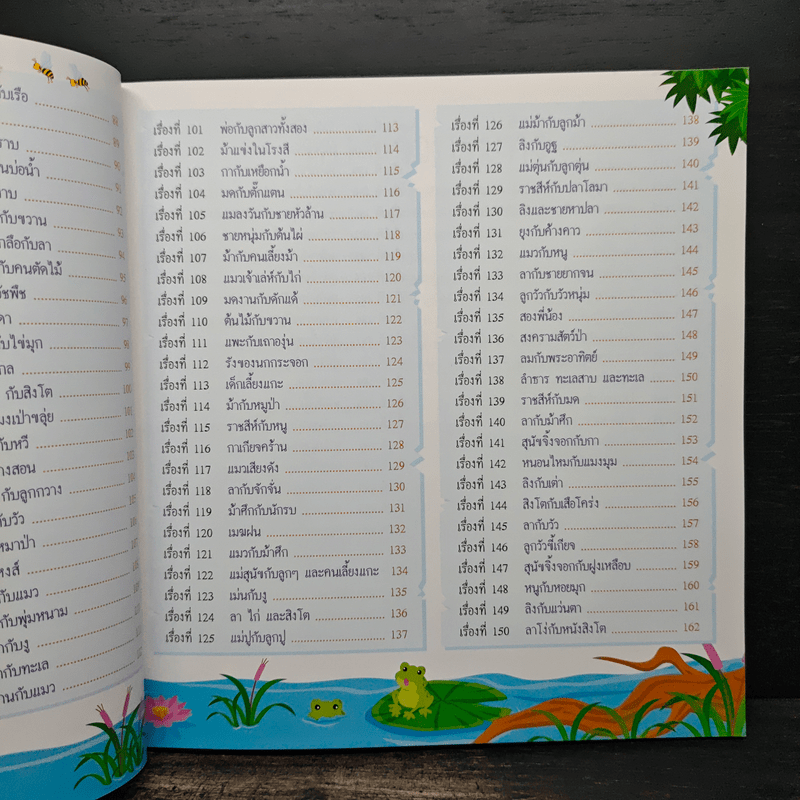 กับเรือ
89
90
นบ่อน้ำ 91
92
กับขวาน 93
กลือกับลา 94
กับคนตัดไม้ 95
96
97
ับไข่มุก 98
99
กับสิงโต 100
101
กับหวี 102
103
กับลูกกวาง 104
105
106
107
กับแมว
กับพุ่มหนาม
กับงู
กับทะเล
านกับแมว
เรื่องที่ 101 พ่อกับลูกสาวทั้งสอง 113
เรื่องที่ 102 ม้าแข่งในโรงสี 114
เรื่องที่ 103 กากับเหยือกน้ำ 115
เรื่องที่ 104 มดกับตั๊กแตน 116
เรื่องที่ 105 แมลงวันกับชายหัวล้าน 117
เรื่องที่ 106 ชายหนุ่มกับต้นไผ่ 118
เรื่องที่ 107 ม้ากับคนเลี้ยงม้า 119
เรื่องที่ 108 แมวเจ้าเล่ห์กับไก่ 120
เรื่องที่ 109 มดงานกับดักแด้ 121
เรื่องที่ 110 ต้นไม้กับขวาน 122
เรื่องที่ 111 แพะกับเถาองุ่น 123
เรื่องที่ 112 รังของนกกระจอก 124
เรื่องที่ 113 เด็กเลี้ยงแกะ 125
เรื่องที่ 114 ม้ากับหมูป่า 126
เรื่องที่ 115 ราชสีห์กับหนู 127
เรื่องที่ 116 กาเกียจคร้าน 128
เรื่องที่ 117 แมวเสียงดัง 129
เรื่องที่ 118 ลากับจักจั่น 130
เรื่องที่ 119 ม้าศึกกับนักรบ 131
เรื่องที่ 120 เมฆฝน 132
เรื่องที่ 121 แมวกับม้าศึก 133
เรื่องที่ 122 แม่สุนัขกับลูกๆ และคนเลี้ยงแกะ 134
เรื่องที่ 123 เม่นกับงู 135
เรื่องที่ 124 ลา ไก่ และสิงโต 136
เรื่องที่ 125 แม่ปูกับลูกปู 137
เรื่องที่ 126 แม่ม้ากับลูกม้า 138
เรื่องที่ 127 ลิงกับอูฐ 139
เรื่องที่ 128 แม่ตุ่นกับลูกตุ่น 140
เรื่องที่ 129 ราชสีห์กับปลาโลมา 141
เรื่องที่ 130 ลิงและชายหาปลา 142
เรื่องที่ 131 ยุงกับค้างคาว 143
เรื่องที่ 132 แมวกับหนู 144
เรื่องที่ 133 ลากับชายยากจน 145
เรื่องที่ 134 ลูกวัวกับวัวหนุ่ม 146
เรื่องที่ 135 สองพี่น้อง 147
เรื่องที่ 136 สงครามสัตว์ป่า 148
เรื่องที่ 137 ลมกับพระอาทิตย์ 149
เรื่องที่ 138 ลำธาร ทะเลสาบ และทะเล 150
เรื่องที่ 139 ราชสีห์กับมด 151
เรื่องที่ 140 ลากับม้าศึก 152
เรื่องที่ 141 สุนัขจิ้งจอกกับกา 153
เรื่องที่ 142 หนอนไหมกับแมงมุม 154
เรื่องที่ 143 ลิงกับเต่า 155
เรื่องที่ 144 สิงโตกับเสือโคร่ง 156
เรื่องที่ 145 ลากับวัว 157
เรื่องที่ 146 ลูกวัวขี้เกียจ 158
เรื่องที่ 147 สุนัขจิ้งจอกกับฝูงเหลือบ 159
เรื่องที่ 148 หนูกับหอยมุก 160
เรื่องที่ 149 ลิงกับแว่นตา 161
เรื่องที่ 150 ลาโง่กับหนังสิงโต 162